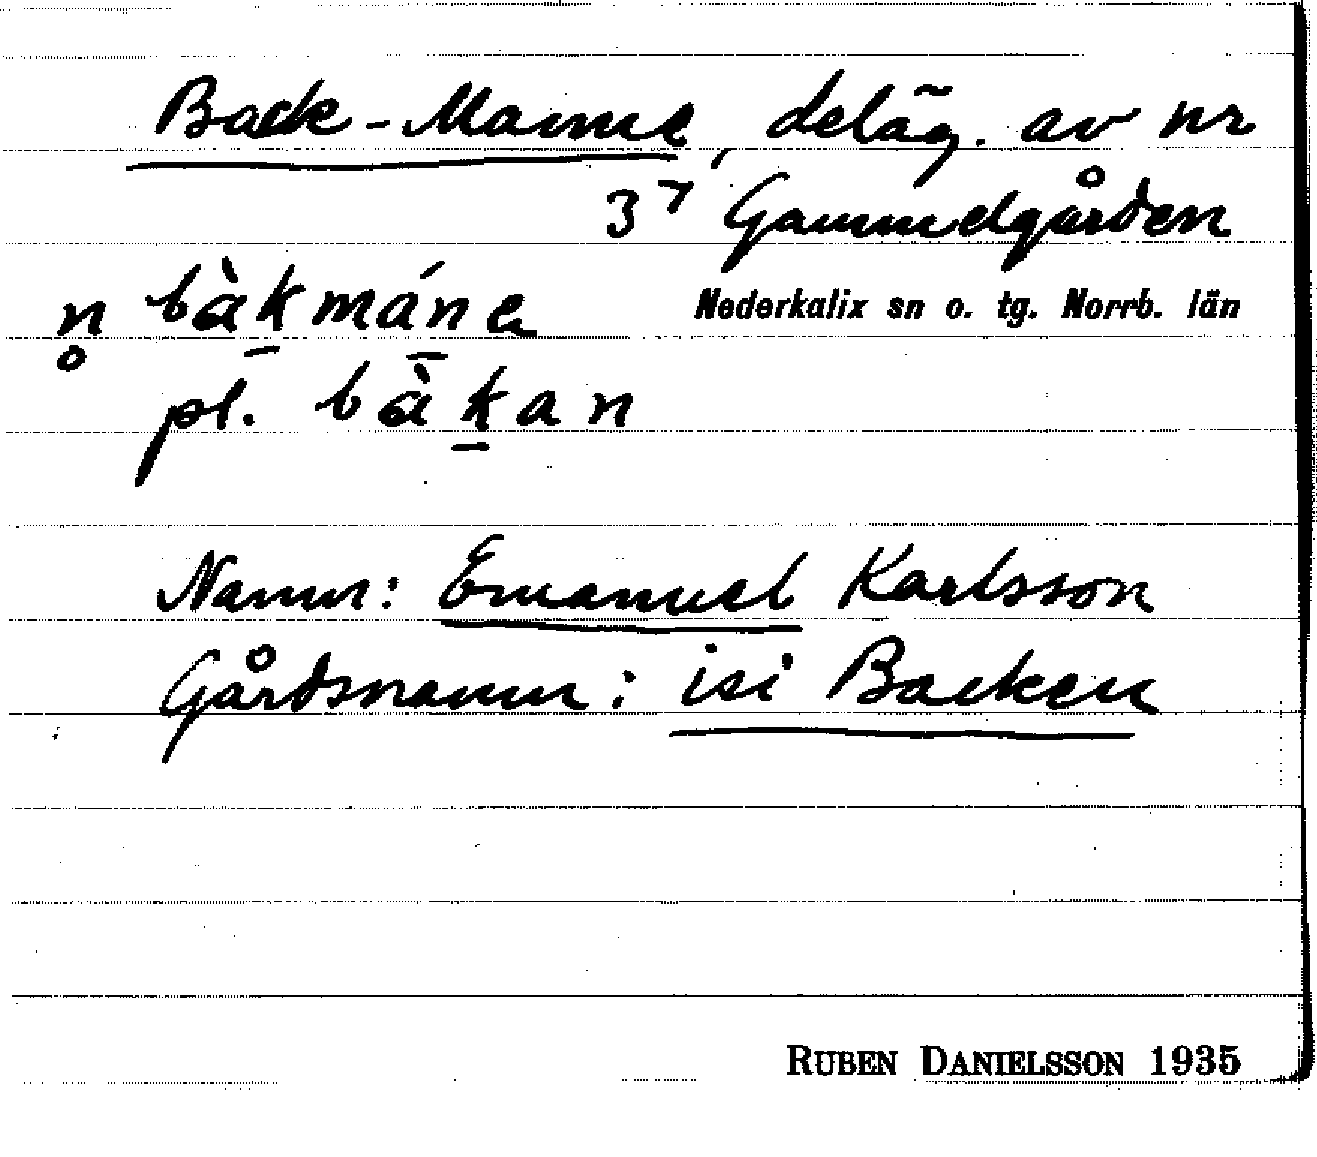 Back-Manne, deläg. av nr
3⁷ Gammelgården
n̥ bàk̠mán̠a Nederkalix sn o. tg. Norrb. län
pl. bàk̠an
Namn: Emanuel Karlsson
Gårdsnamn: isi Backen
RUBEN DANIELSSON 1935